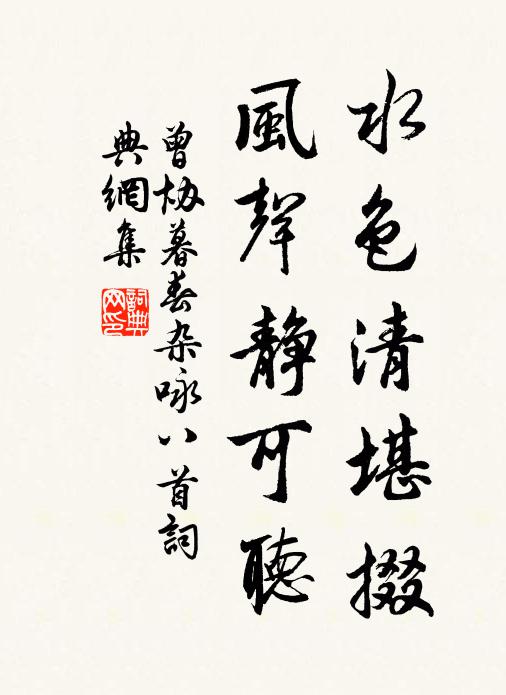 水色清堪掇
風聲靜可聽
曾協暮春杂咏八首詞
典網集
詞典网印